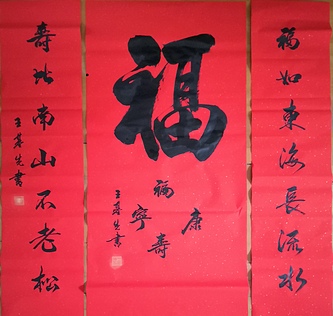 福如東海長流水
福
福壽康寧
王 先書
壽比南山不老松
王 先書